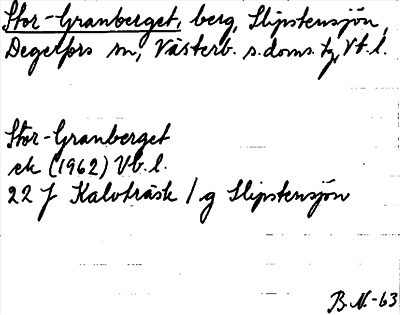 Stor-Granberget, berg, Slipstensjön,
Degerfors sn, Västerb. s. doms. tg, Vb. l.
Stor-Granberget
ek (1962) Vb. l.
22 J Kalvträsk / g Slipstensjön
B.N.-63